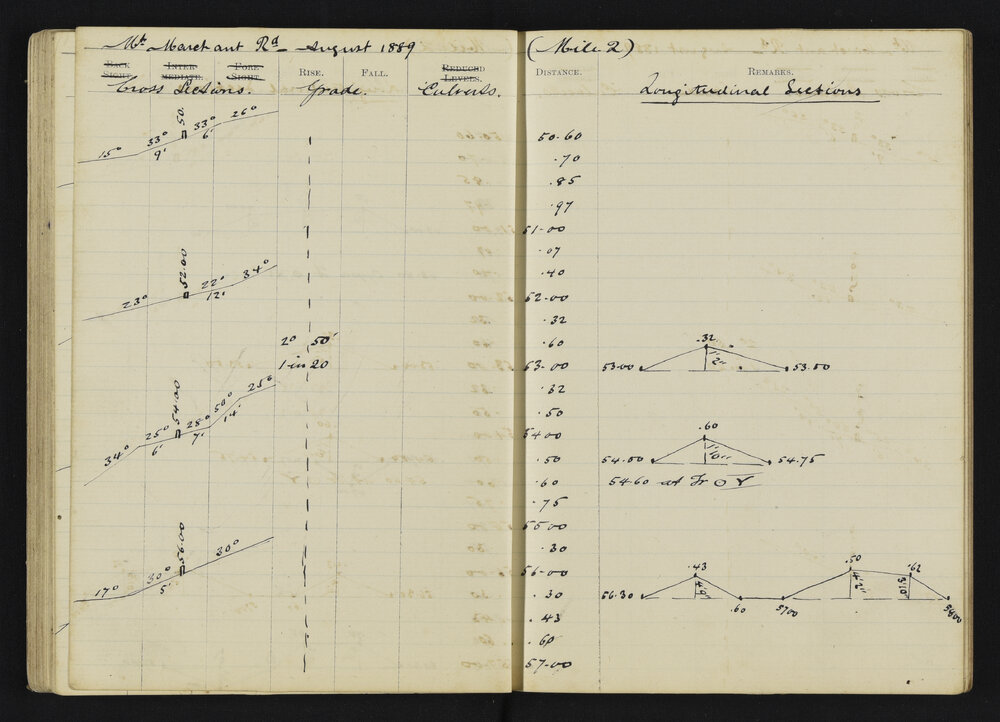 Mt Marchant Rd August 1889 (Mile 2)
BACK SIGHT. INTERMEDIATE. FORE-SIGHT. RISE. FALL. REDUCED LEVELS. DISTANCE. REMARKS.
Cross Sections. Grade. Culverts. Longitudinal Sections
50. 33° 26°
15° 33° 9' 6'
50.60
.70
.85
.97
51.00
.07
.40
52.00
23° 22° 34° 12'
52.00
.32
20 50'
.60
1 in 20
53.00
.32
53.00 53.50
.32
.50
54.00
34° 25° 28° 50° 25°
6' 7' 14'
54.00
.60
.50
54.00 54.75
.60
54.60 at Tr O Y
.75
55.00
.30
56.00
17° 30° 30°
5'
56.00
.43 .50 .62
4'9" 4'2" 3'10"
.30
56.30 .60 57.00 58.00
.43
.60
57.00